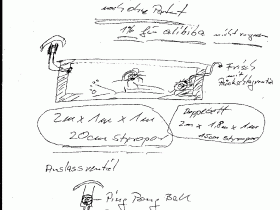 noch ohne Patent
1% für alibiba nicht vergessen
Frisch
mit
2m x 1m x 1m
20cm Styropor
Doppelbett
2m x 1,8m x 1m
15cm Styropor
Auslassventil
Ping Pong Ball